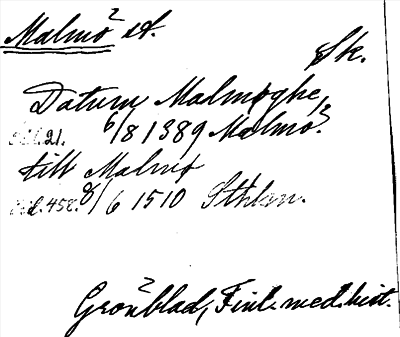 Malmö st.
Sk.
Datum Malmøghe,
sid. 21. 6/8 1389 Malmö.
till Malmø
sid. 458. 9/6 1510 Sthlm.
Grönblad, Finl. med. hist.